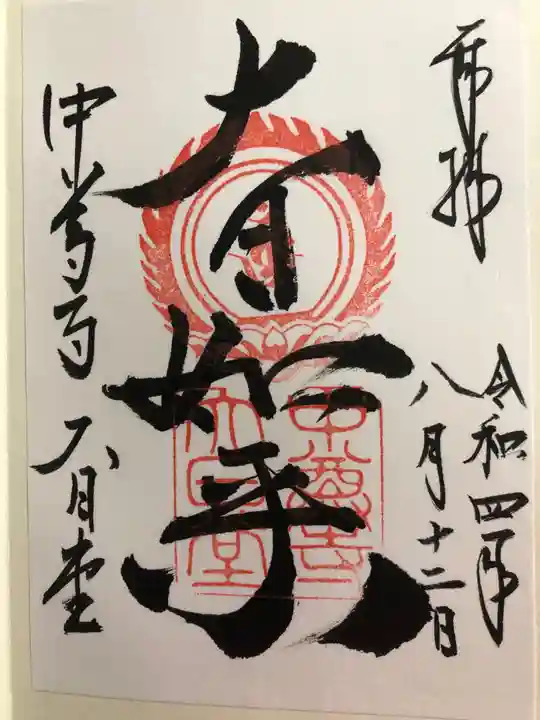 奉拝
令和四年
八月十二日
大日如来
中尊寺 大日堂
中尊寺
大日堂